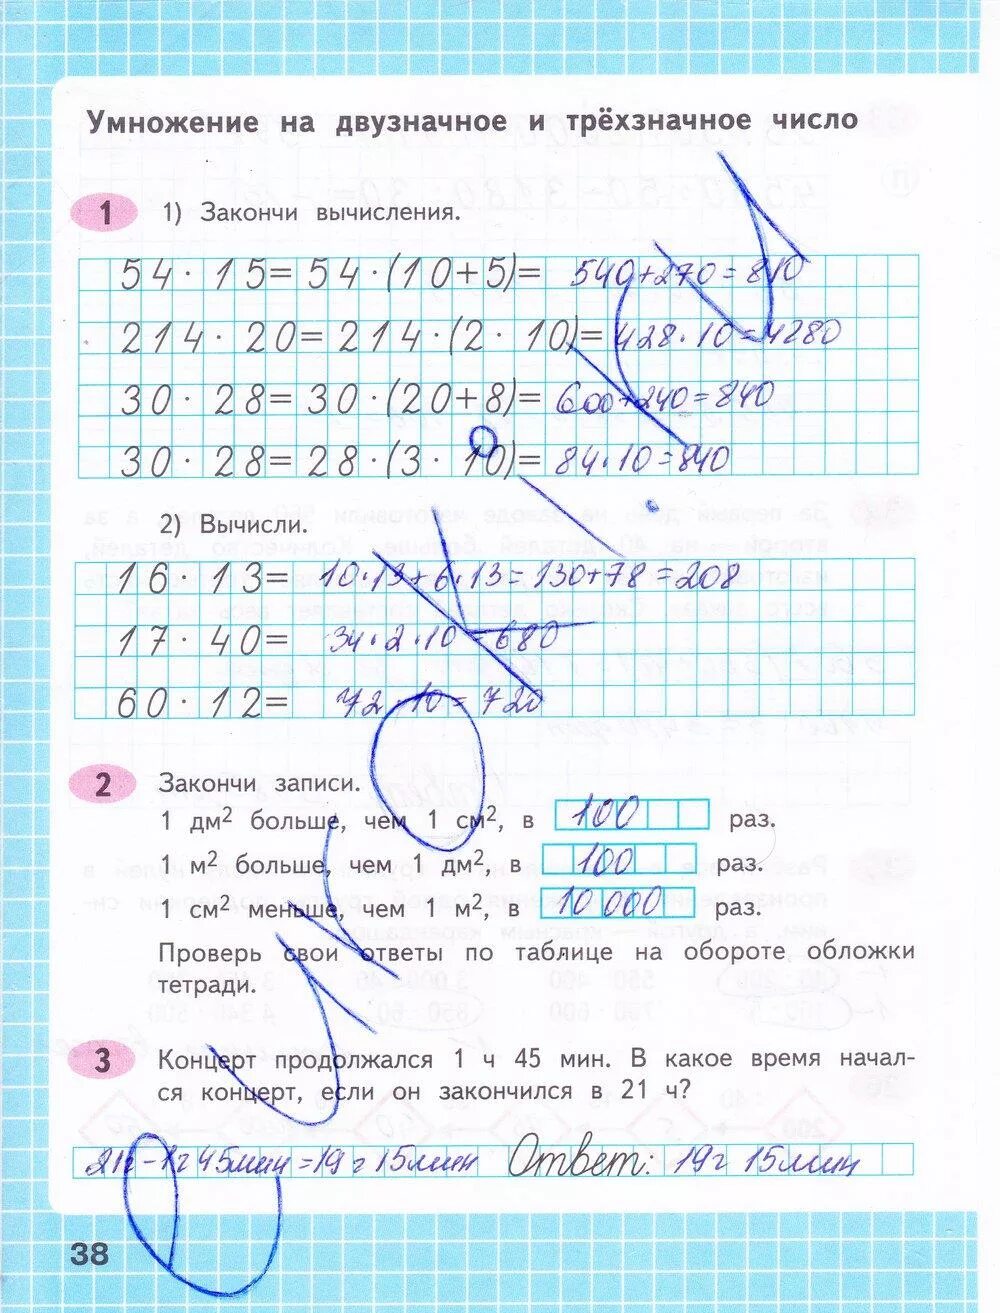 Умножение на двузначное и трёхзначное число
1 1) Закончи вычисления.
54 · 15= 54 ·(10+5)= 540+270=810
214 · 20=214 ·(2 · 10)=428·10=4280
30 · 28=30 ·(20+8)= 600+240=840
30 · 28=28 ·(3 · 10)= 84·10=840
2) Вычисли.
16 · 13= 10·13+6·13=130+78=208
17 · 40= 34·2·10=680
60 · 12= 72·10=720
2 Закончи записи.
1 дм² больше, чем 1 см², в 100 раз.
1 м² больше, чем 1 дм², в 100 раз.
1 см² меньше, чем 1 м², в 10 000 раз.
Проверь свои ответы по таблице на обороте обложки
тетради.
3 Концерт продолжался 1 ч 45 мин. В какое время начал-
ся концерт, если он закончился в 21 ч?
21ч-1ч45мин=19ч15мин Ответ: 19ч 15мин
38